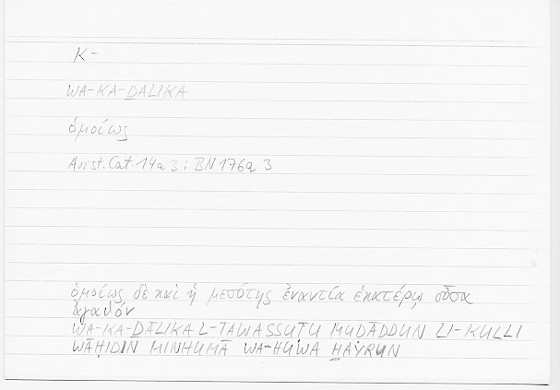 K-
WA-KA-ḎALIKA
ὁμοίως
Arist. Cat. 14a 3 ; BN 176a 3
ὁμοίως δὲ καὶ ἡ μεσότης ἐναντία ἑκατέρῳ οὖσα
ἀγαθόν
WA-KA-ḎĀLIKA L-TAWASSUṬU MUḌĀDDUN LI-KULLI
WĀḤIDIN MINHUMĀ WA-HUWA ḪAYRUN